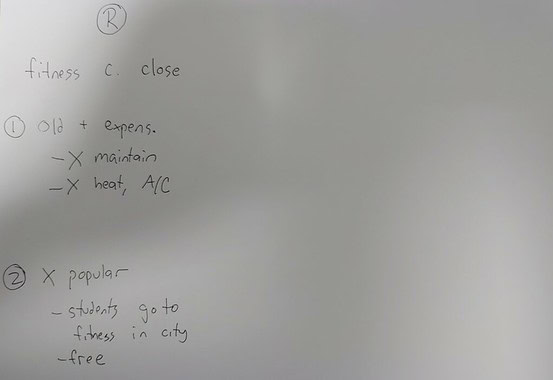 R
fitness c. close
1 Old + expens.
- X maintain
- X heat, A/C
2 X popular
- students go to
fitness in city
- free